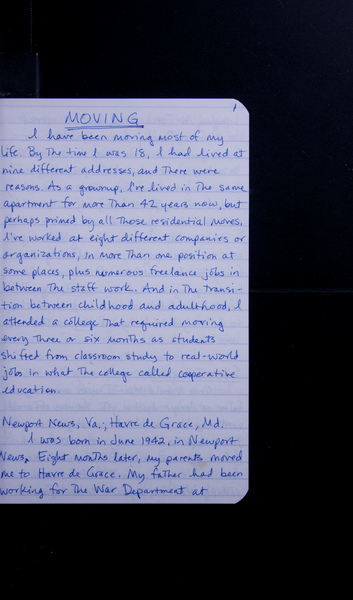 1
MOVING
I have been moving most of my
life. By the time I was 18, I had lived at
nine different addresses, and there were
reasons. As a grownup, I've lived in the same
apartment for more than 42 years now, but
perhaps primed by all those residential moves,
I've worked at eight different companies or
organizations, in more than one position at
some places, plus numerous freelance jobs in
between the staff work. And in the transi-
tion between childhood and adulthood, I
attended a college that required moving
every three or six months as students
shifted from classroom study to real-world
jobs in what the college called cooperative
education.
Newport News, Va.; Havre de Grace, Md.
I was born in June 1942, in Newport
News. Eight months later, my parents moved
me to Havre de Grace. My father had been
working for the War Department at